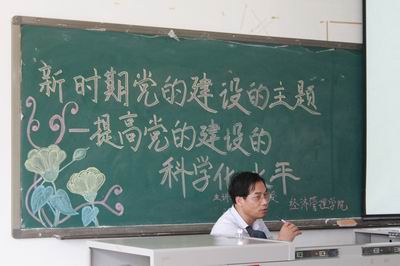 新时期党的建设的主题
—提高党的建设的
科学化水平
主讲
经济管理学院